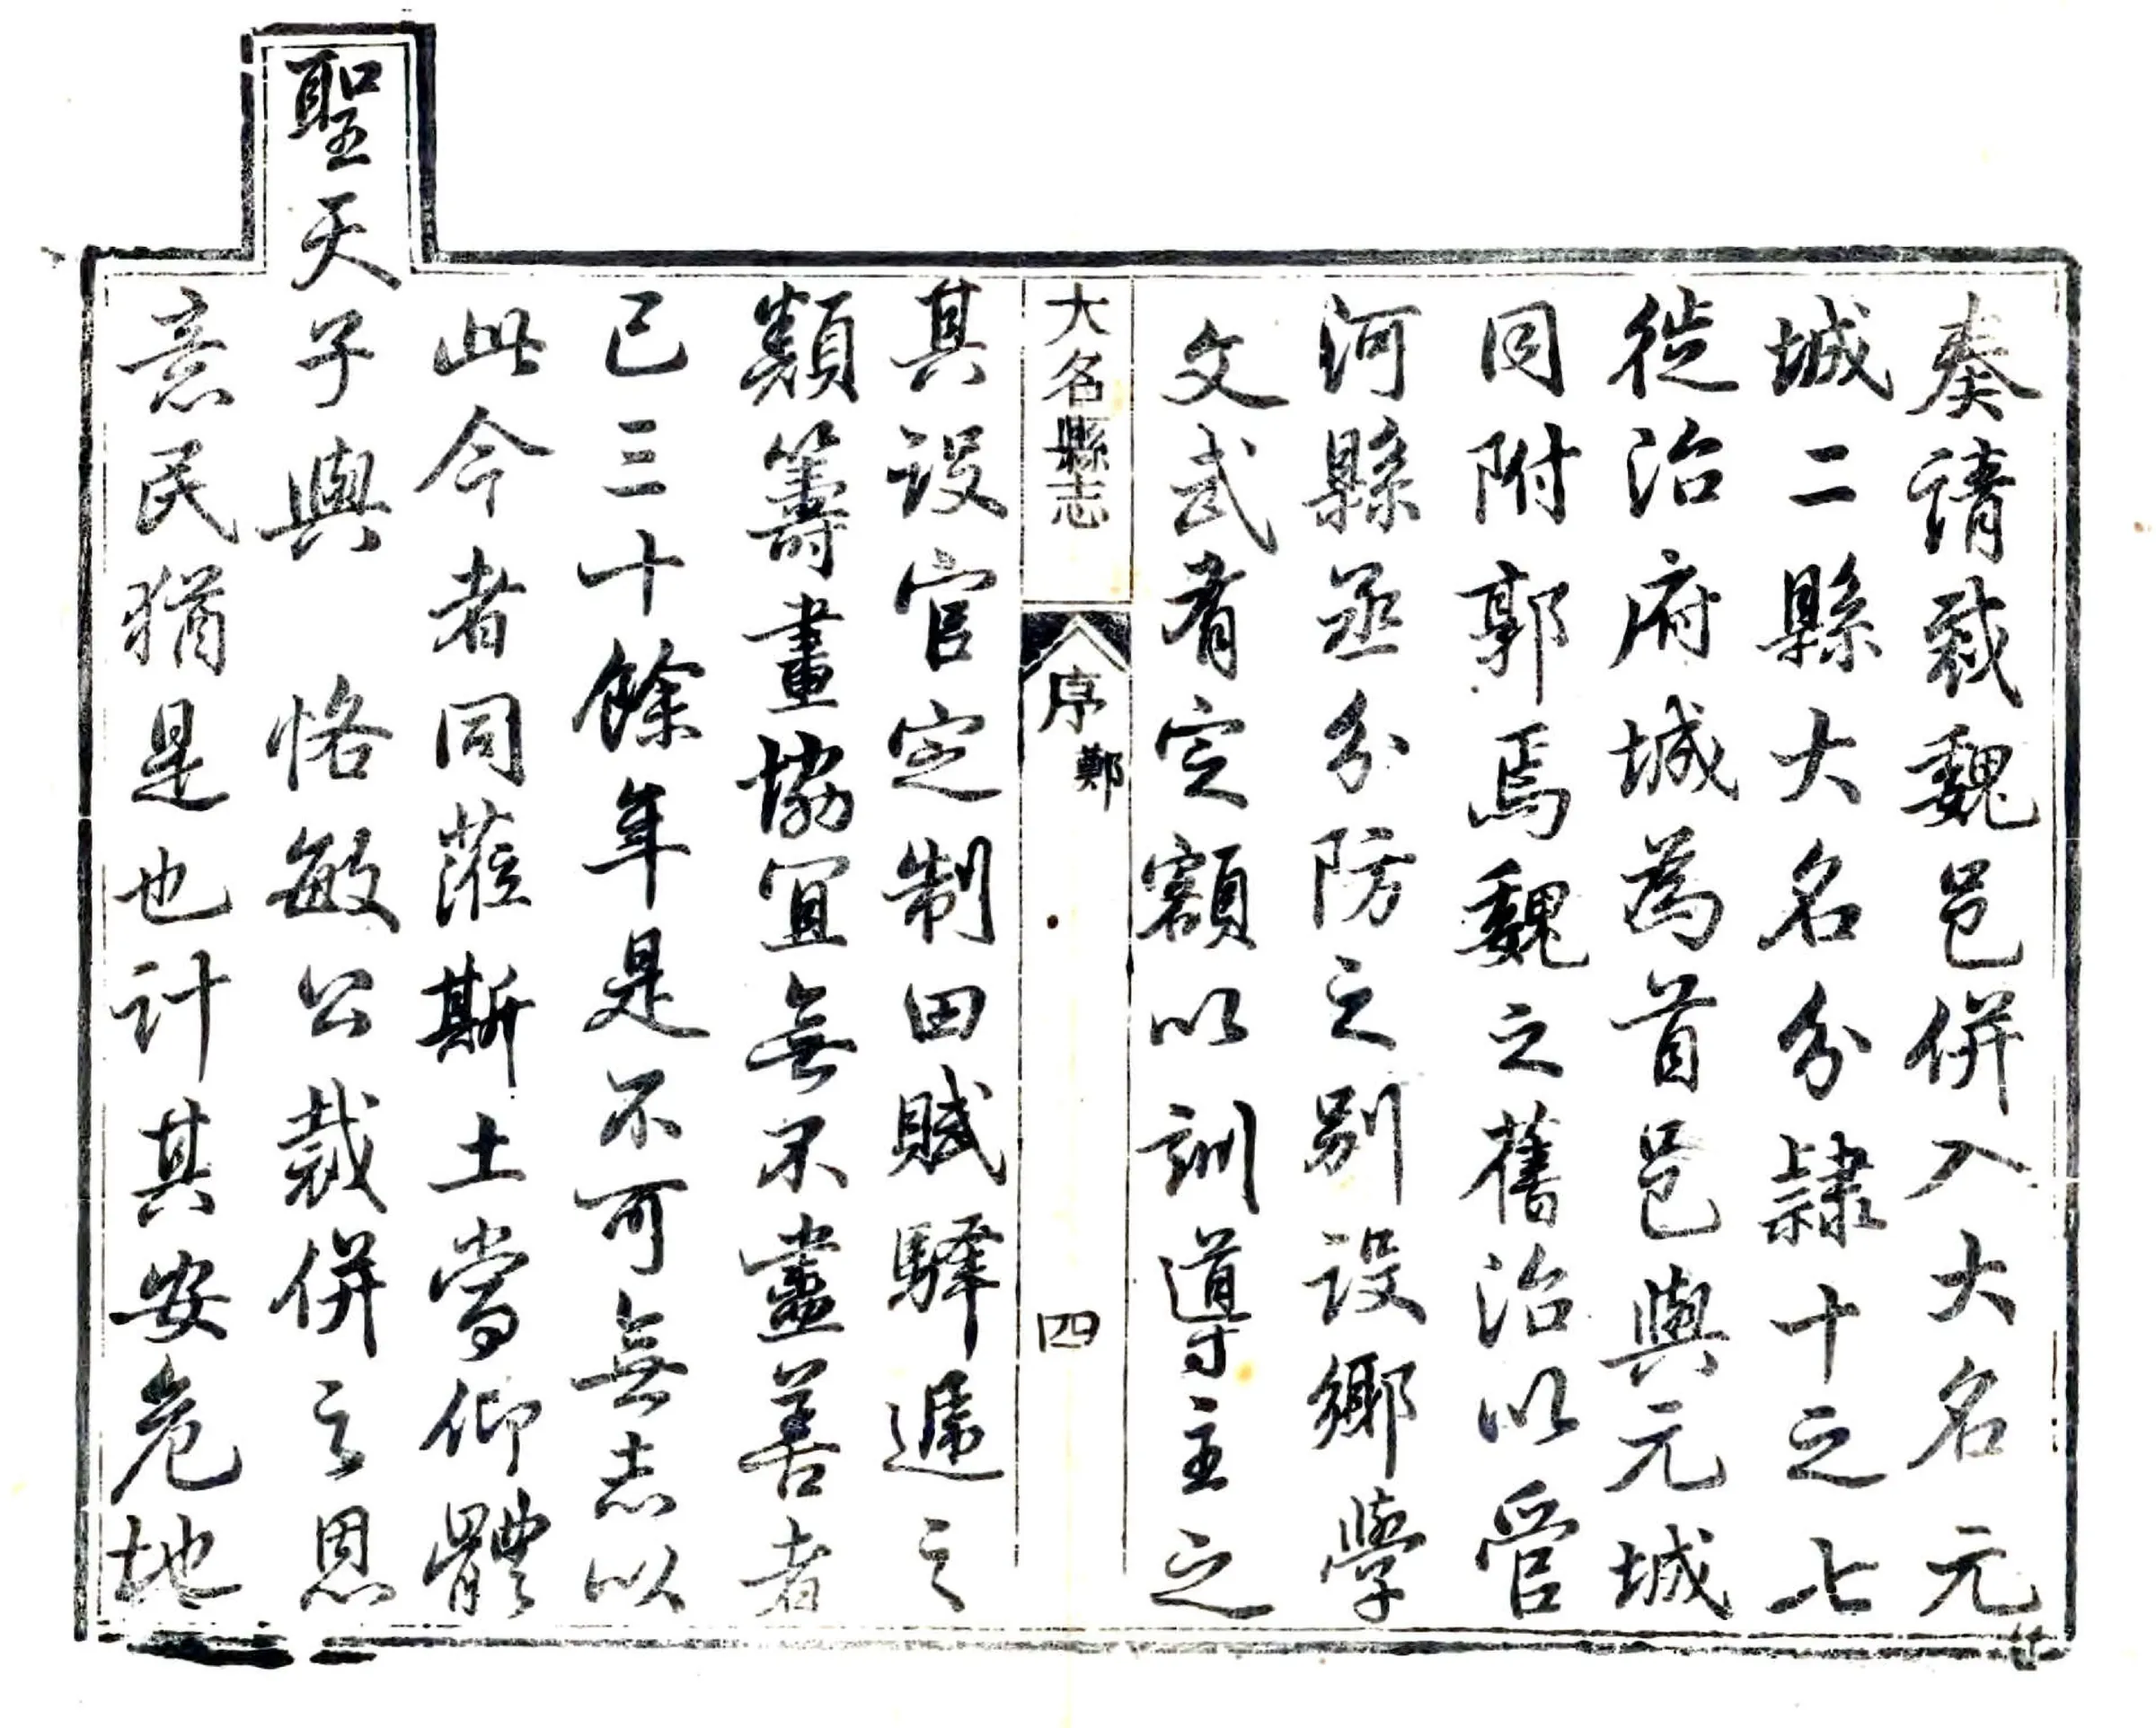 奏請裁魏邑併入大名元
城二縣大名分隷十之七
徙治府城為首邑與元城
同附郭焉魏之舊治以管
河縣丞分防之别設鄉學
文武有定額以訓導主之
大名縣志
序
鄭
四
其設官定制田賦驛遞之
類籌畫協宜無不盡善者
已三十餘年是不可無志以
此今者同蒞斯土當仰體
聖天子與 恪敏公裁併之恩
意民猶是也計其安危地